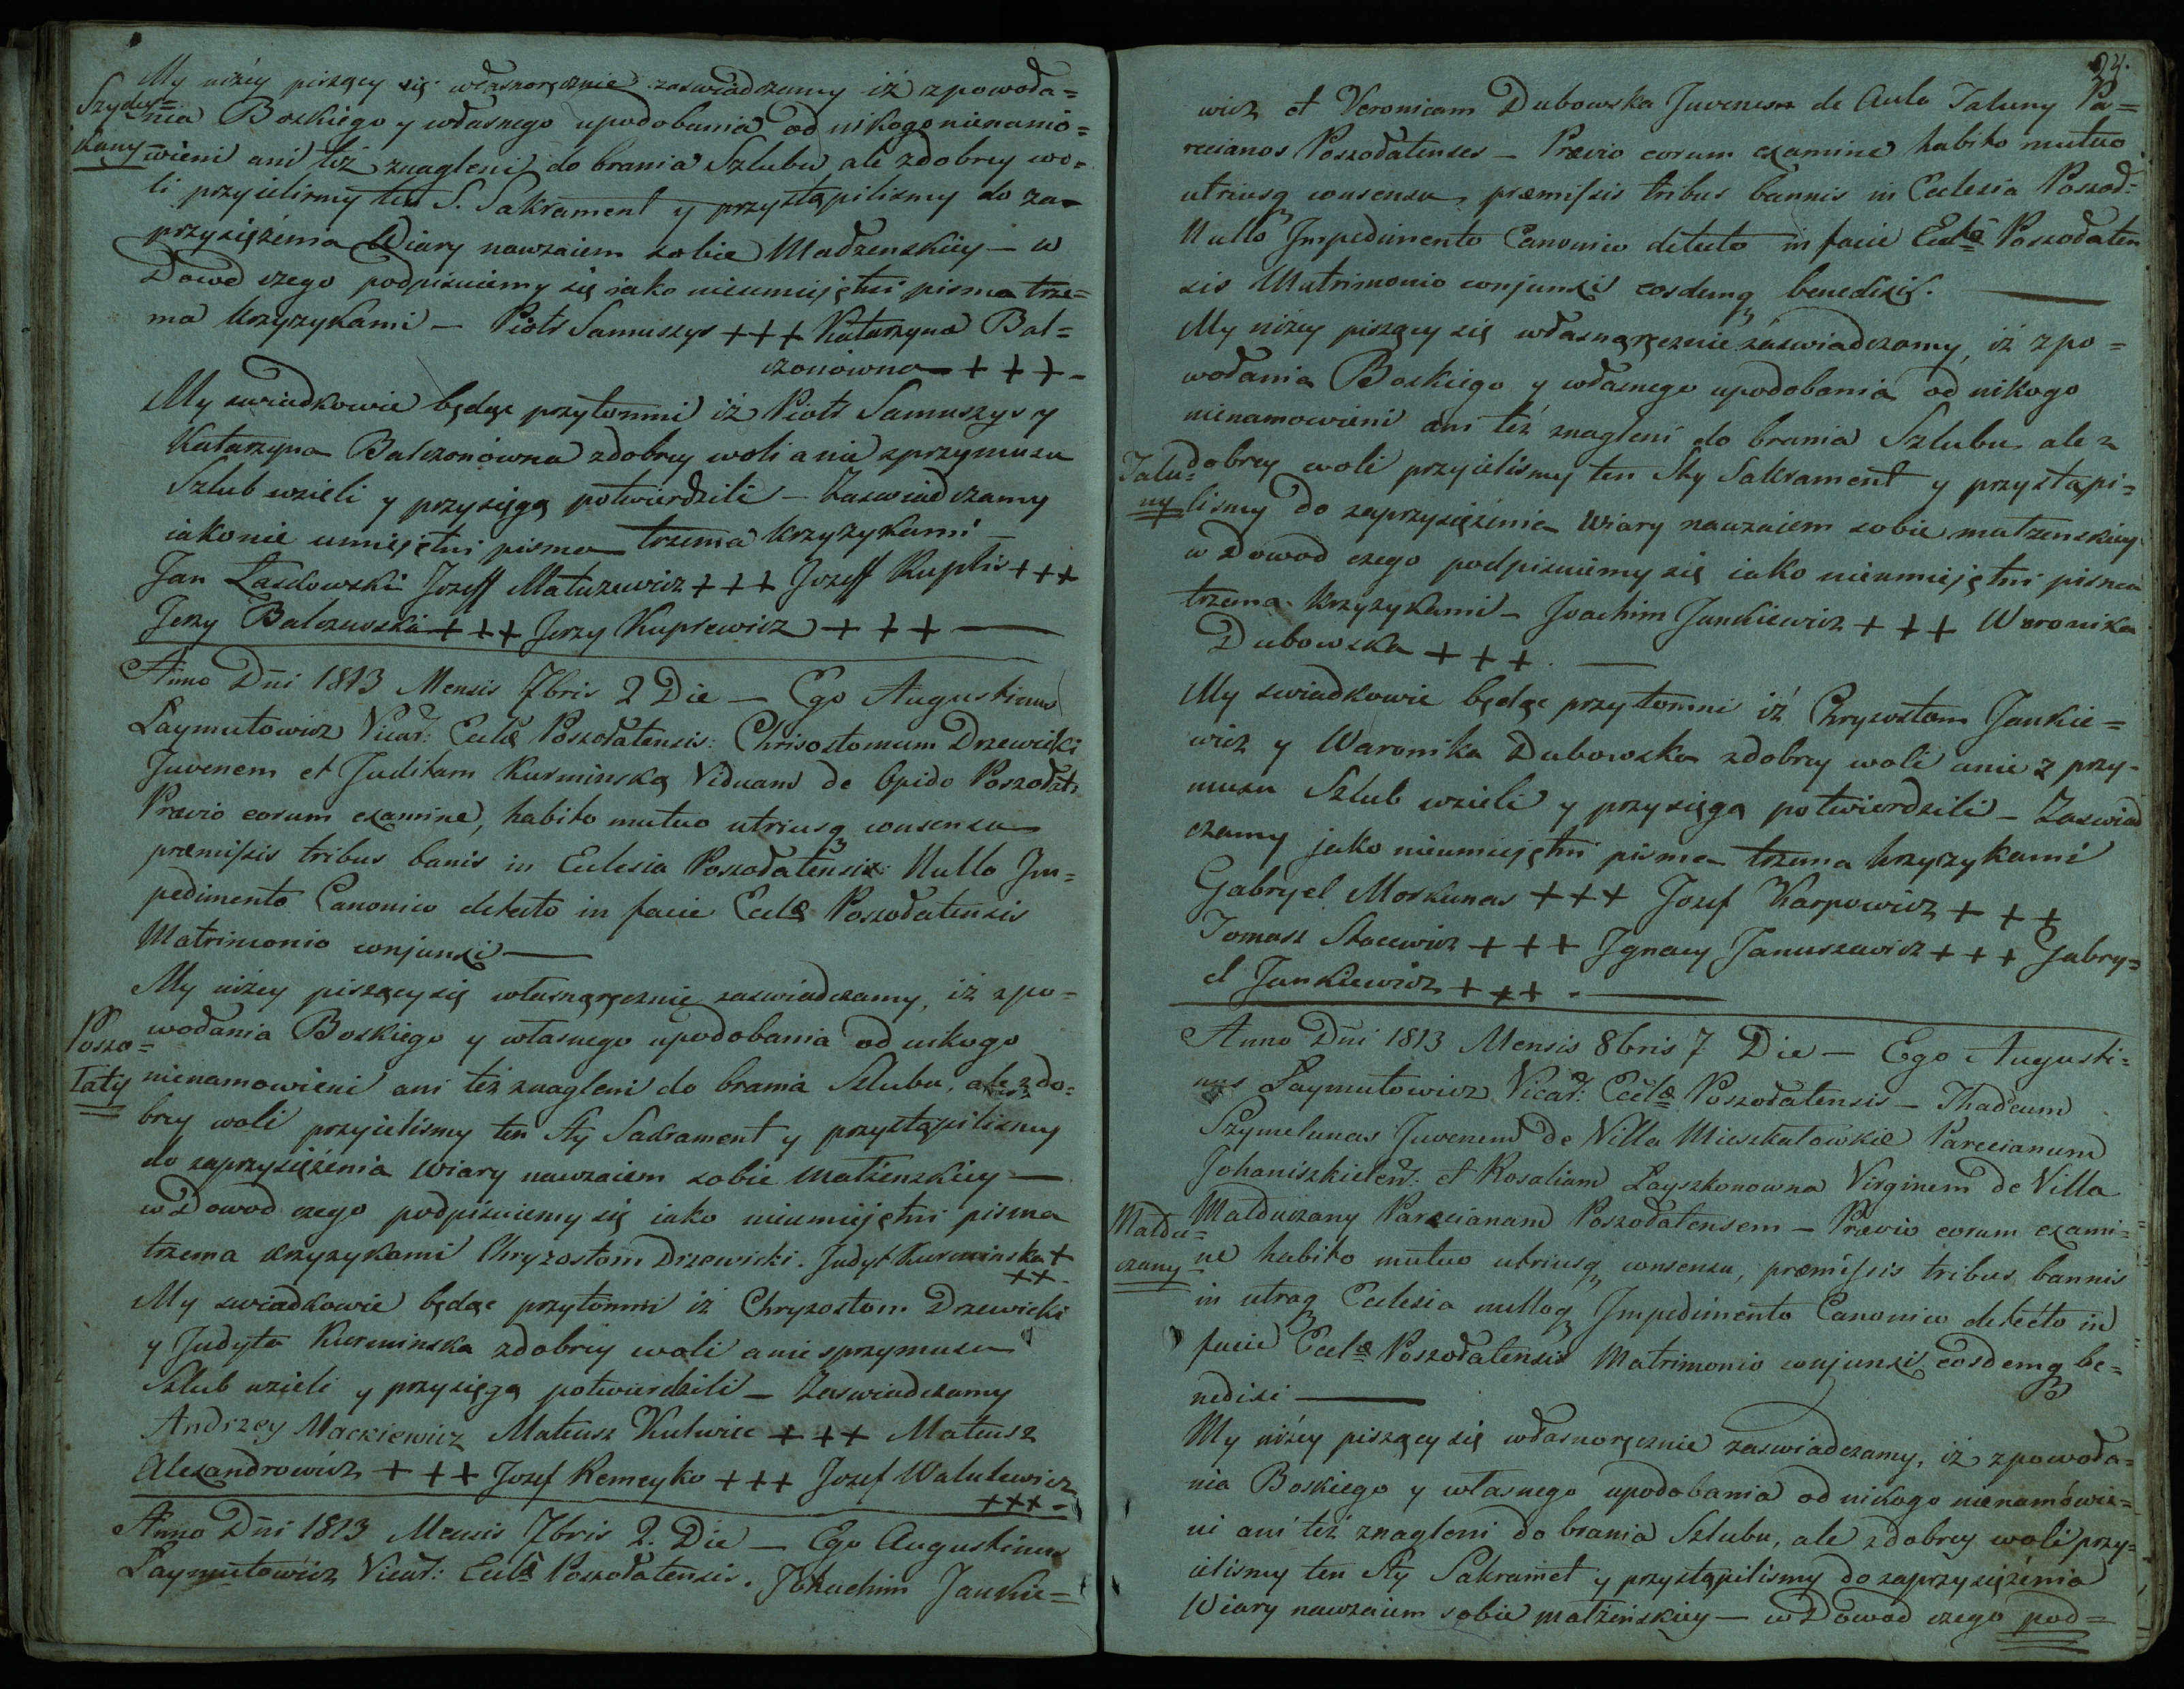 My niżey piszący się własnoręcznie zaswiadczamy iż zpowoła=
Szydy=
nia Boskiego y własnego upodobania od nikogo nienamó=
kany
wieni ani też znagleni do brania Szlubu ale zdobrey wo=
li przyielismy ten S. Sakrament y przystąpilismy do za=
przysiężenia Wiary nawzaiem sobie Małzenskiey — w
Dowod czego podpisuiemy się iako nieumieiętni pisma trze=
ma krzyzykami — Piotr Samuszys +++ Katarzyna Bal=
czonowna +++ -
My swiadkowie będąc przytomni iż Piotr Samuszys y
Katarzyna Balczonówna zdobrey woli a nie zprzymusu
Szlub wzieli y przysięgą potwierdzili — Zaswiadczamy
iako nie umieiętni pisma trzema krzyzykami —
Jan Lasdowski Jozeff Matuzewicz +++ Jozeff Kuplis +++
Jerzy Balczewski +++ Jerzy Kuprewicz +++ —
Anno Dni 1813 Mensis 7bris 2 Die — Ego Augustinus
Laymutowicz Vicar: Eccla Poszołatensis: Chrisostomum Drzewicki
Juvenem et Juditam Kurminską Viduam de Opido Poszołat:
Prævio eorum examine, habito mutuo utriusq consensu
præmissis tribus banis in Eclesia Poszołatensis: Nullo Im=
pedimento Canonico detecto in facie Eccla Poszołatensis
Matrimonio conjunxi —
My niżey piszący się własnąręcznie zaswiadczamy, iż zpo=
Poszo=
wołania Boskiego y własnego upodobania od nikogo
łaty
nienamowieni ani też znagleni do brania Szlubu, ale zdo=
brey woli przyielismy ten Sty Sacrament y przystąpilismy
do zaprzysiężenia Wiary nawzaiem sobie Małżenskiey —
w Dowod czego podpisuiemy się iako nieumieiętni pisma
trzema krzyzykami Chryzostom Drzewicki. Judyt Kurminska +
++ -
My swiadkowie będąc przytomni iż Chryzostom Drzewicki
y Judyta Kurminska zdobrey woli a nie sprzymusu
Szlub wzieli y przysięgą potwierdzili — Zaswiadczamy
Andrzey Mackiewicz Mateusz Kulwiec +++ Mateusz
Alexandrowicz +++ Jozef Remeyko +++ Jozef Walulewicz
+++ -
Anno Dni 1813 Mensis 7bris 2. Die — Ego Augustinus
Laymutowicz Vicar: Eccla Poszołatensis. Johachim Jankie=
24.
wicz et Veronicam Dubowska Juvenes de Aula Taluny Pa=
recianos Poszołatenses — Prævio eorum examine habito mutuo
utriusq consensu, præmissis tribus bannis in Eclesia Poszoł=
Nullo Impedimento Canonico detecto in facie Eccla Poszołaten
sis Matrimonio conjunxi eosdemq benedixi. —
My niżey piszący się własnąręcznie zaswiadczamy, iż zpo=
wołania Boskiego y własnego upodobania od nikogo
nienamowieni ani też znagleni do brania Szlubu ale z
Talu=
dobrey woli przyielismy ten Sty Sakrament y przystąpi=
ny
lismy do zaprzysiężenia Wiary nawzaiem sobie małzenskiey
w Dowod czego podpisuiemy się iako nieumieiętni pisma
trzema krzyzykami — Joachim Jankiewicz +++ Weronika
Dubowska +++. —
My swiadkowie będąc przytomni iż Chryzostom Jankie=
wicz y Waronika Dubowska zdobrey woli anie z przy-
musu Szlub wzieli y przysięgą potwierdzili — Zaswiad
czamy jako nieumieiętni pisma trzema krzyzykami
Gabryel Moskunas +++ Jozef Karpowicz +++
Tomasz Stacewicz +++ Jgnacy Januszewicz +++ Gabry=
el Jankiewicz +++. —
Anno Dni 1813 Mensis 8bris 7 Die — Ego Augusti=
nus Laymutowicz Vicar: Eccla Poszołatensis — Thadeum
Szymelunas Juvenem de Villa Mieszkałowkie Parecianum
Johaniszkielen: et Rosaliam Layszkonowna Virginem de Villa
Małdu=
Małduczany Parecianam Poszołatensem — Prævio eorum exami=
czany
ne habito mutuo utriusq consensu, præmissis tribus bannis
in utraq Eclesia nulloq Impedimento Canonico detecto in
facie Eccla Poszołatensis Matrimonio conjunxi eosdemq be=
nedixi —
My niżey piszący się własnoręcznie zaswiadczamy, iż zpowoła=
nia Boskiego y własnego upodobania od nikogo nienamówie=
ni ani też znagleni do brania Szlubu, ale zdobrey woli przy=
ielismy ten Sty Sakramet y przystąpilismy do zaprzysiężenia
Wiary nawzaiem sobie małżeńskiey — w Dowod czego pod=